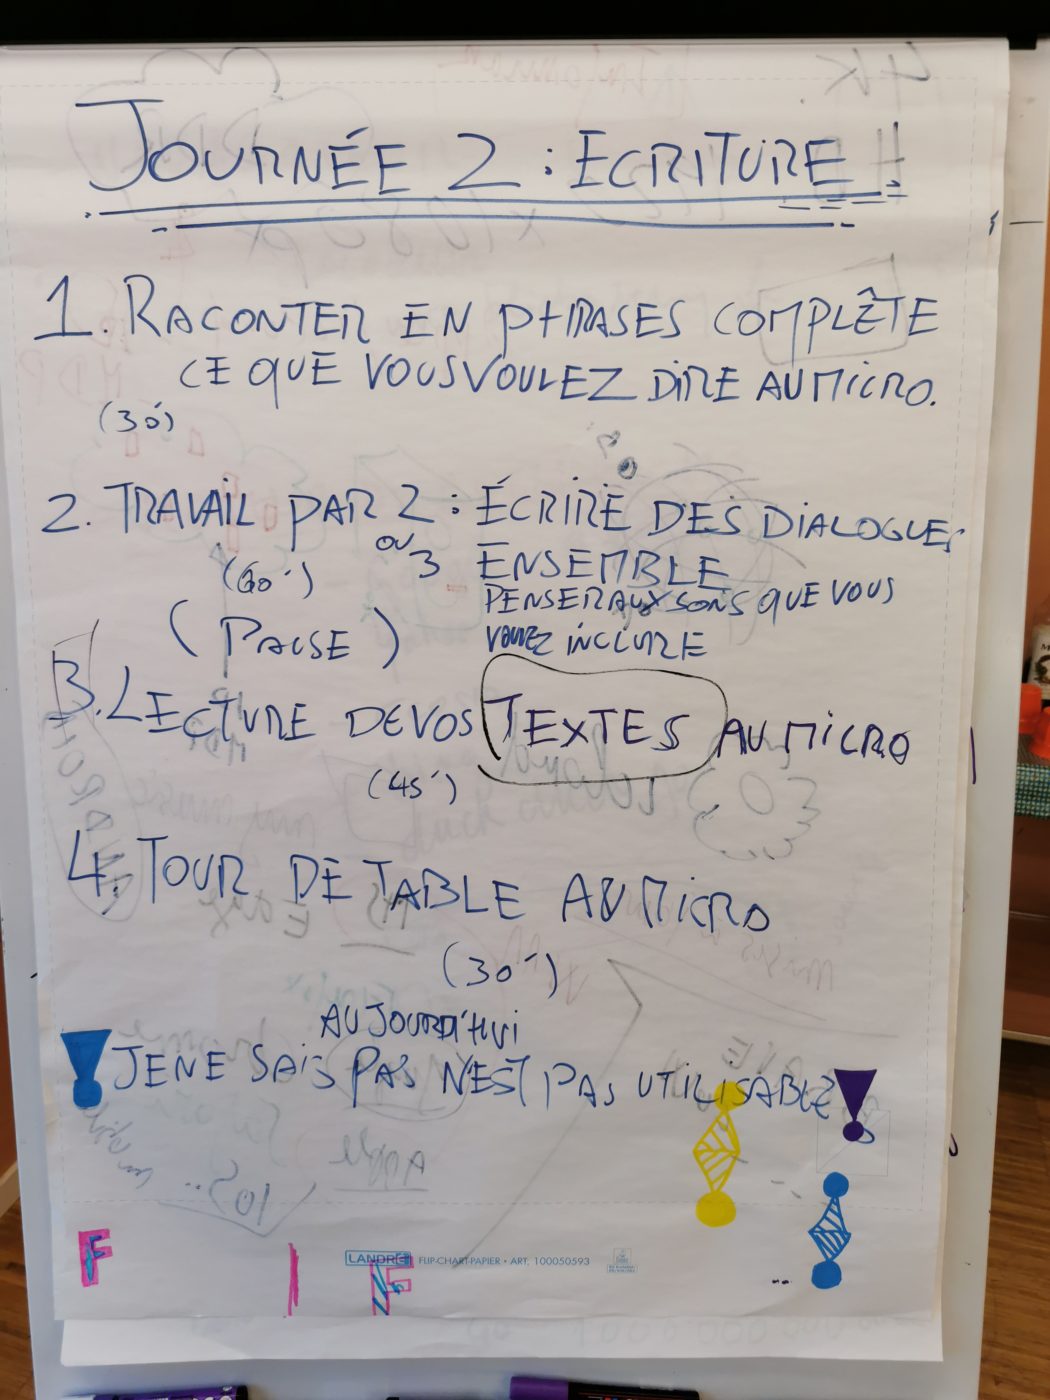 JOURNÉE 2 : ECRITURE
1. RACONTER EN PHRASES COMPLÊTE
CE QUE VOUS VOULEZ DIRE AU MICRO.
(30')
2. TRAVAIL PAR 2 : ÉCRIRE DES DIALOGUES
OU 3 ENSEMBLE
(60')
PENSER AUX SONS QUE VOUS
VOULEZ INCLURE
(PAUSE)
3. LECTURE DE VOS TEXTES AU MICRO
(45')
4. TOUR DE TABLE AU MICRO
(30')
AUJOURD'HUI
! JE NE SAIS PAS N'EST PAS UTILISABLE !
F I F
LANDRÉ FLIP-CHART-PAPIER • ART. 100050593